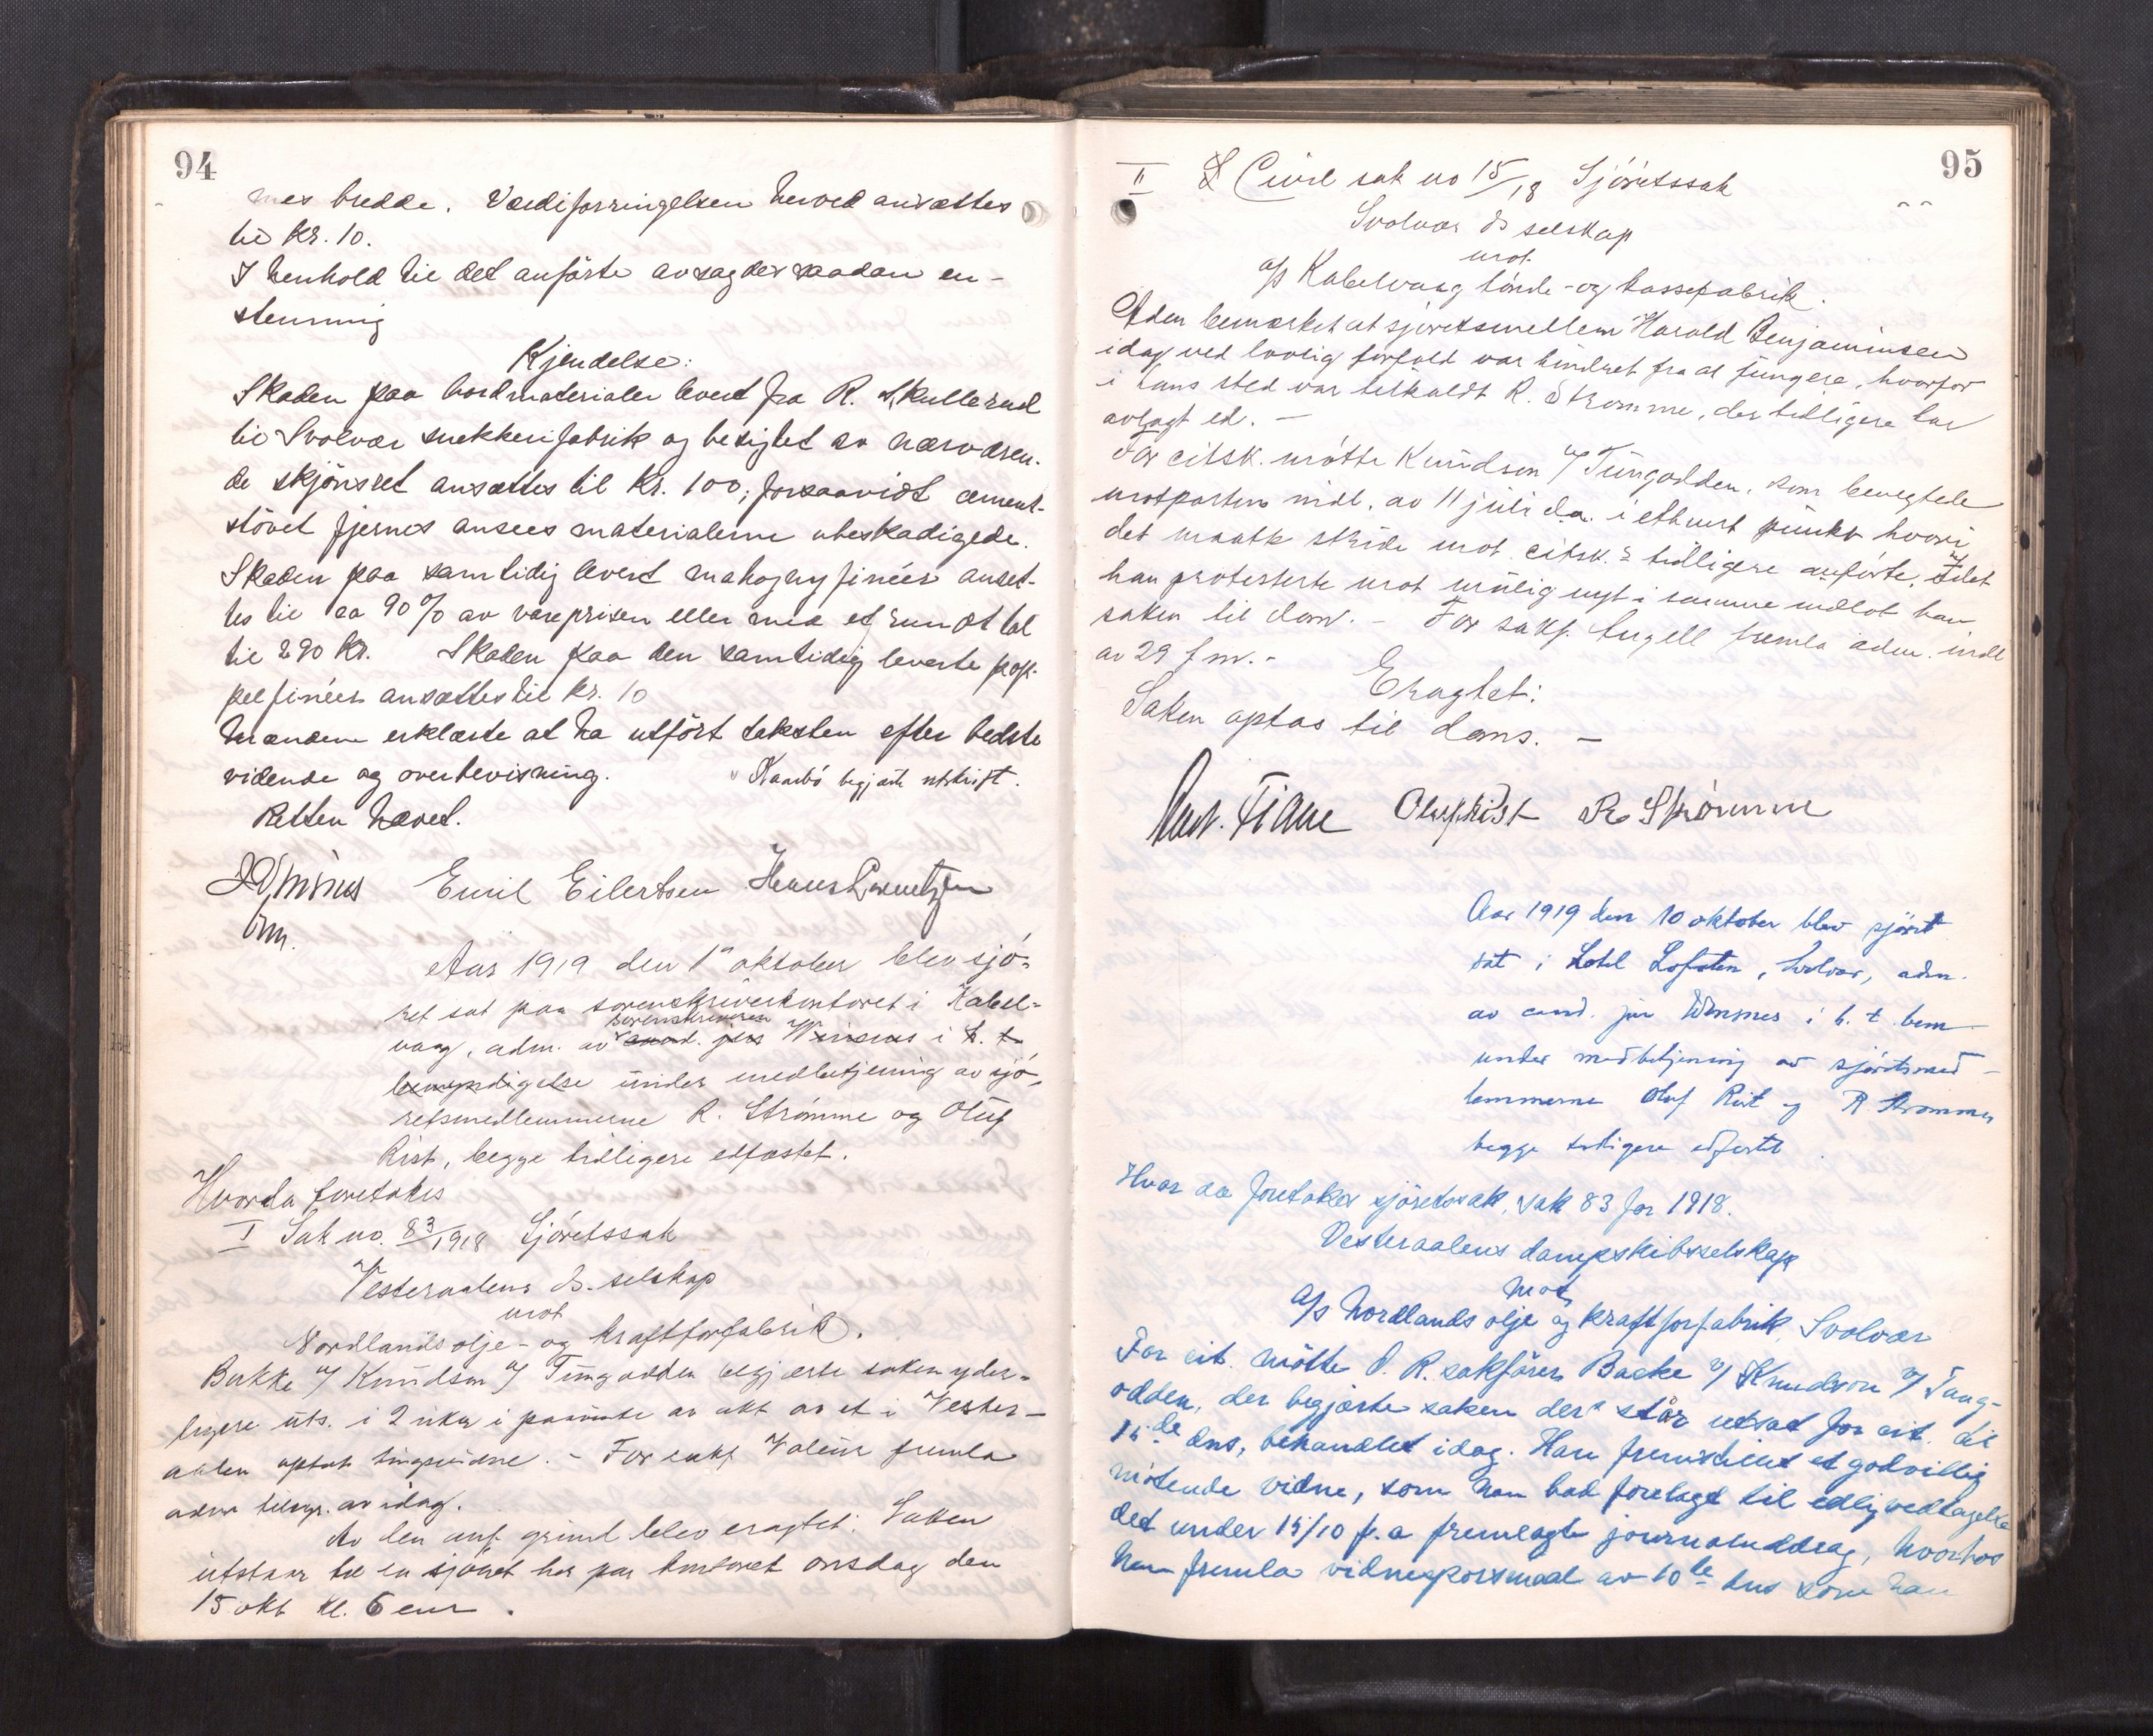 94
mes bredde. Værdiforringelsen herved ansættes
til kr. 10.
I henhold til det anførte avsagdes saadan en-
stemmig
Kjendelse:
Skaden paa bordmaterialer levert fra R. Skullerud
til Svolvær snekkerifabrik og besigtet av nærværen-
de skjønsret ansættes til kr. 100; forsaavidt cement-
støvet fjernes ansees materialerne ubeskadigede.
Skaden paa samtidig levert mahogny finéer anset-
tes til ca 90% av vareprisen eller med et rundt tal
til 290 kr. Skaden paa den samtidig leverte pop-
pelfinéer ansættes til kr. 10
Mændene erklærte at ha utført taksten efter bedste
vidende og overbevisning. Kaarbö begjærte utskrift.
Retten hævet.
Emil Eilertsen Hans Lorentzen
Aar 1919 den 1ste oktober blev sjö-
ret sat paa sorenskriverkontoret i Kabel-
sorenskriveren
vaag, adm. av cand. jur Winsnes i h. t.
bemyndigelse under medbetjening av sjö-
retsmedlemmerne R. Strömme og Oluf
Rist, begge tidligere edfæstet.
Hvorda foretokes
I Sak no. 83/1918 Sjöretssak
Vesteraalens ds. selskap
mot
Nordlands olje- og kraftforfabrik.
Bakke v/ Knudson v/ Tungodden begjærte saken yder-
ligere uts. i 2 uker i paavente av akt av et i Vester-
aalen optat tingsvidne. - For sakf. Valeur fremla
adm tilsgr. av idag.
Av den anf. grund blev eragtet: Saken
utstaar til en sjöret her paa kontoret onsdag den
15 okt kl. 6 em.
95
II Civil sak no 15/18 Sjöretssak
Svolvær ds selskap
mot
a/s Kabelvaag tönde- og kassefabrik.
Adm bemerket at sjöretsmedlem Harald Benjaminsen
idag ved lovlig forfald var hindret fra at fungere, hvorfor
i hans sted var tilkaldt R. Strömme, der tidligere har
avlagt ed. -
For citsk. mötte Knudson v/ Tungodden, som benegtede
motpartens indl. av 11 juli d.a. i ethvert punkt hvori
det maatte stride mot citsk.s tidligere anförte. Idet
han protesterte mot mulig nyt i samme indlot han
saken til dom. - For sakf. Angell fremla adm. indl
av 29 f m. -
Eragtet:
Saken optas til doms. -
Oluf Rist R Strömme
Aar 1919 den 10 oktober blev sjöret
sat i Hotel Lofoten, Svolvær, adm.
av cand. jur Winsnes i h. t. bem
under medbetjening av sjöretsmed-
lemmerne Oluf Rist og R. Strömme
begge tidligere edfestet.
Hvor da foretokes sjöretssak, sak 83 for 1918.
Vesteraalens dampskibsselskap
mot
a/s Nordlands olje og kraftforfabrik, Svolvær
For cit. mötte O. R. sakförer Backe v/ Knudson v/ Tung-
odden, der begjærte saken der står utsat for cit. til
15de dns, behandlet idag. Han fremstillet et godvillig
mötende vidne, som han bad foretaget til edlig vedtagelse
det under 15/10 f. a fremlagte journaluddrag, hvorhos
han fremla vidnespörsmaal av 10de dns som han